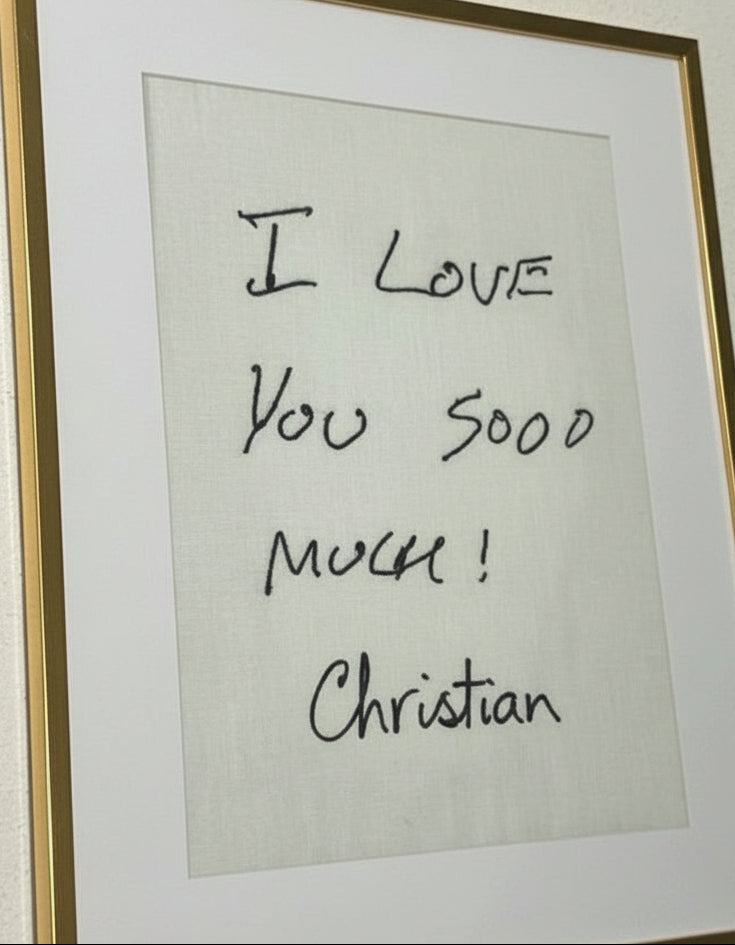 I LOVE
YOU SOOO
MUCH!
Christian